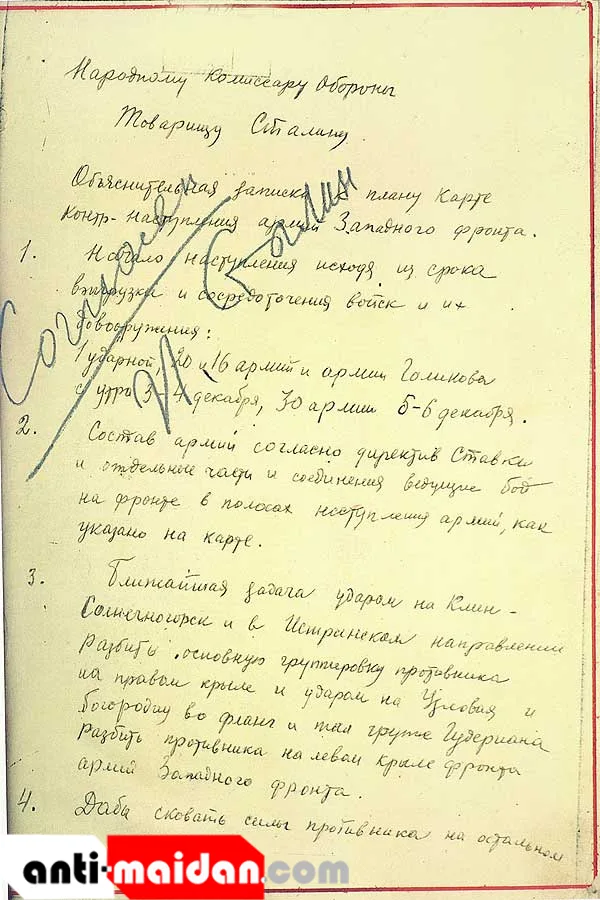 Народному Комиссару Обороны
Товарищу Сталину.
Объяснительная записка к плану карте
контр-наступления армий Западного фронта.
1. Начало наступления исходя из срока
выгрузки и сосредоточения войск и их
довооружения:
1 ударной, 20 и 16 армий и армии Голикова
с утра 3-4 декабря, 30 армии 5-6 декабря.
2. Состав армий согласно директив Ставки
и отдельные части и соединения ведущие бой
на фронте в полосах наступления армий, как
указано на карте.
3. Ближайшая задача ударом на Клин-
Солнечногорск и в Истринском направлении
разбить основную группировку противника
на правом крыле и ударом на Узловая и
Богородиц во фланг и тыл группе Гудериана
разбить противника на левом крыле фронта
армий Западного фронта.
4. Дабы сковать силы противника на остальном
Согласен
И. Сталин
anti-maidan.com